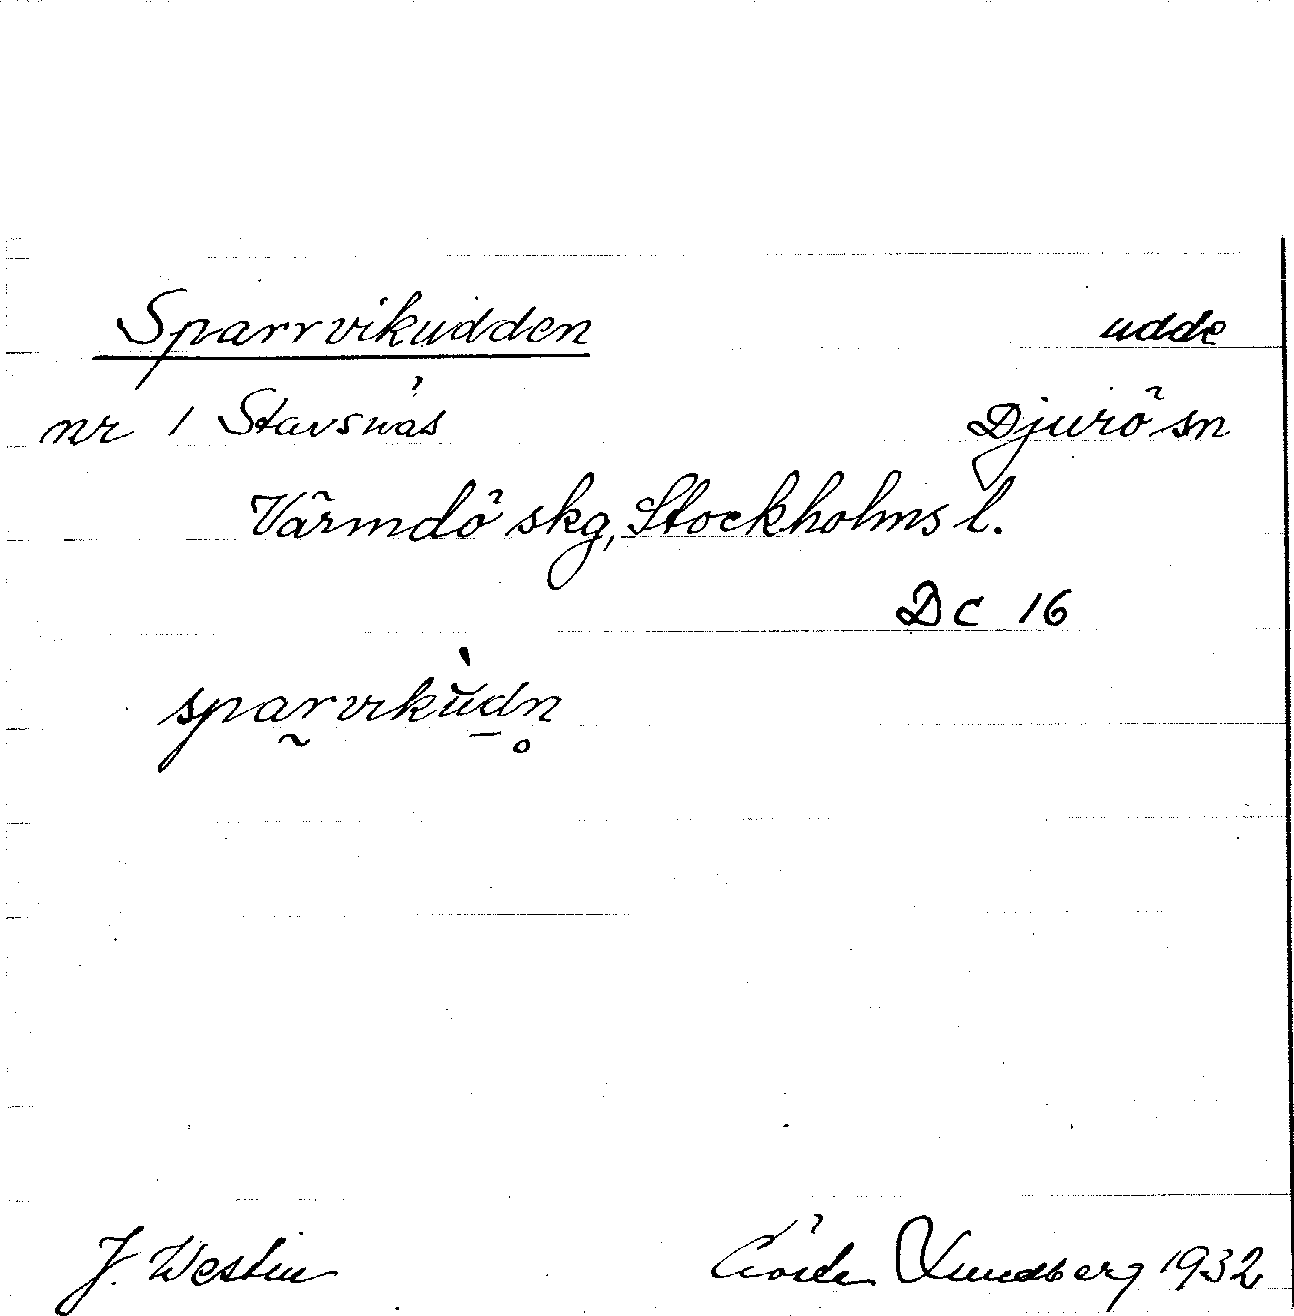 Sparrvikudden udde
nr 1 Stavsnäs Djurö sn
Värmdö skg, Stockholms l.
DC 16
sparvikùdn
J. Westin Gösta Lundberg 1932